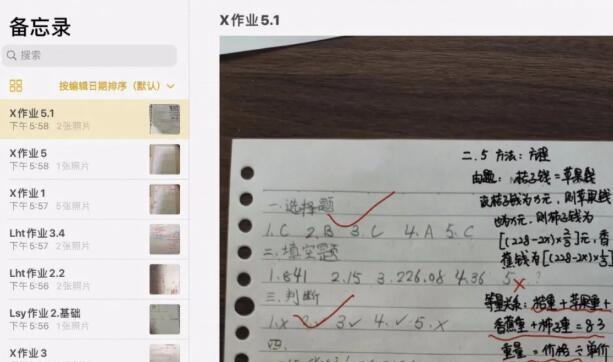 备忘录
搜索
按编辑日期排序（默认）
X作业5.1
下午5:58 2张照片
X作业5
下午5:58 1张照片
X作业1
下午5:57 5张照片
Lht作业3.4
下午5:57 1张照片
Lht作业2.2
下午5:56 2张照片
Lsy作业2.基础
下午5:56 1张照片
X作业5.1
一.选择题
1.C 2.B 3.C 4.A 5.C
二.填空题
1.841 2.15 3.226.08 4.36 5.
三.判断
1.x 2.✓ 3.✓ 4.✓ 5.x
四.
二.5 方法：方程
由题：桔子钱=苹果钱
设桔子钱为x元，则苹果钱
也为x元，则柿子钱为
[(228-2x)×2/3]元，香
蕉钱为[(228-2x)×1/3]
等量关系：桔重+苹果重+
香蕉重+柿子重=83
重量=价格÷单价